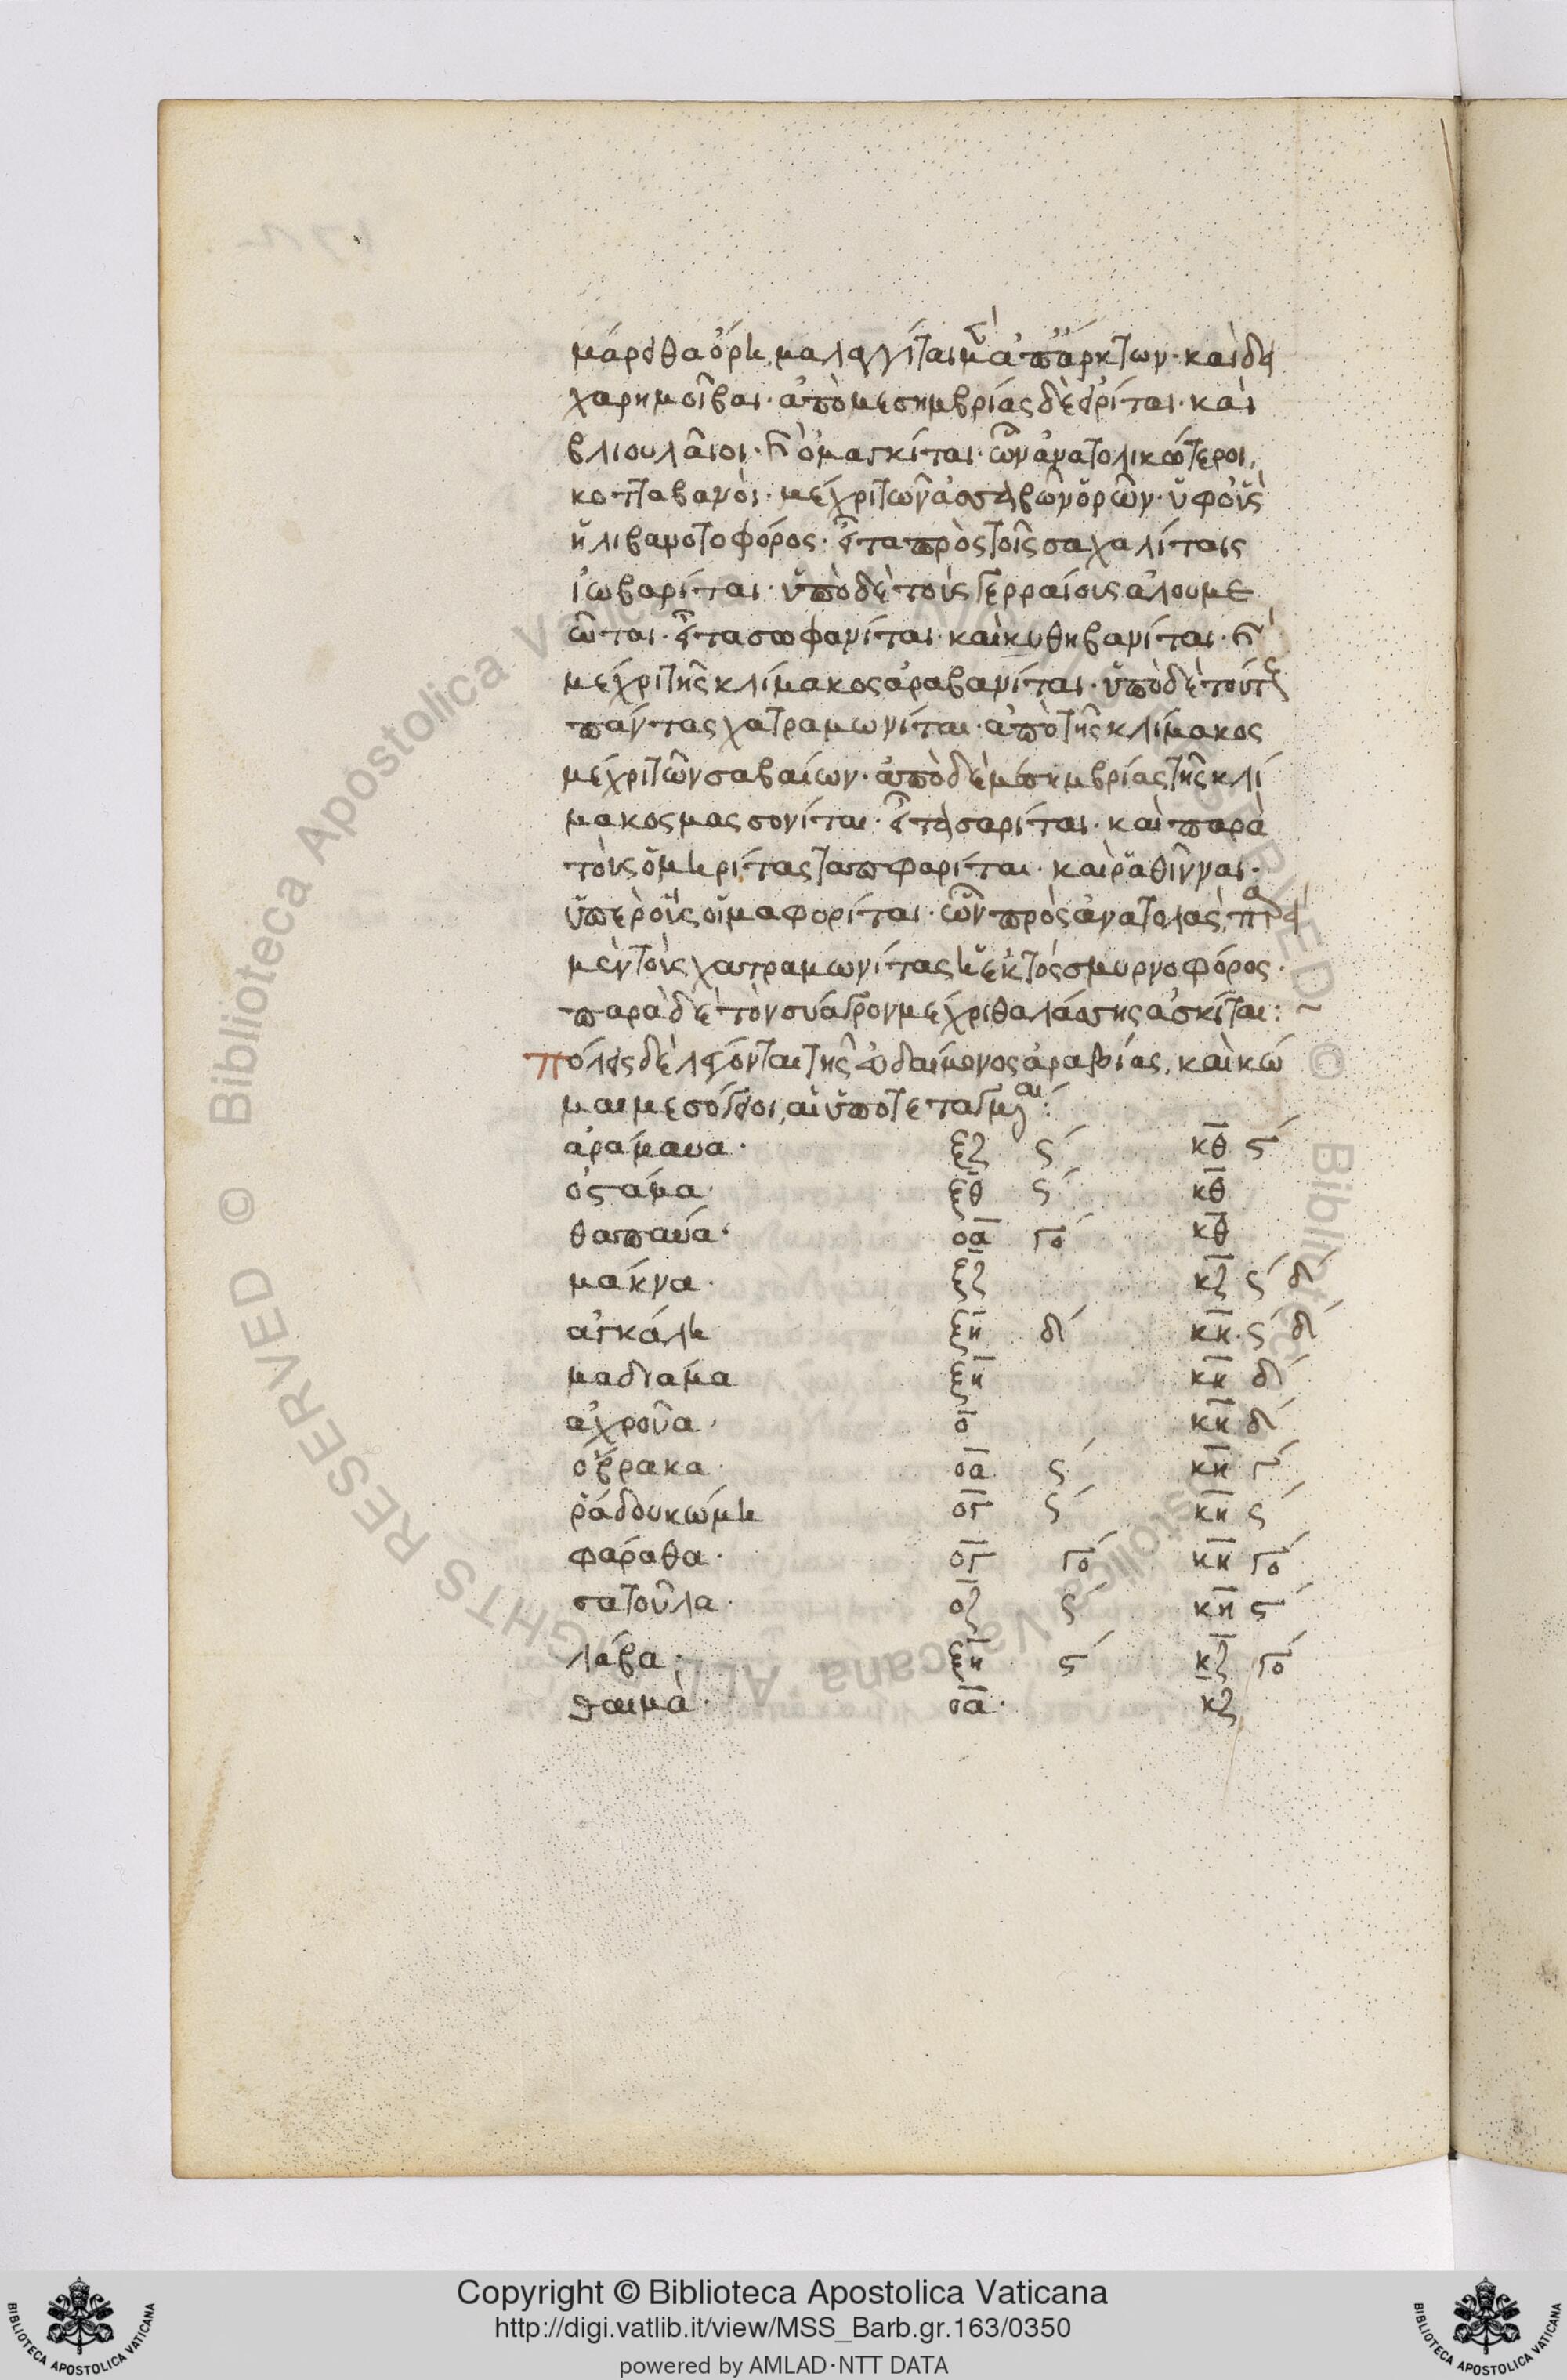 μάρειθα ὄρη, μαλαγγῖται μὲν ἀπ' ἄρκτων· καὶ δα
χαρημοῖβαι· ἀπὸ μεσημβρίας δὲ ζειρῖται· καὶ
βλιουλαῖοι· καὶ ὀμαγκῖται· ὧν ἀνατολικώτεροι,
κοτταβανοὶ· μέχρι τῶν ἀσσαβῶν ὀρῶν· ὑφ' οὓς
ἡ λιβανοτοφόρος· εἶτα πρὸς τοῖς σαχαλίταις
ἰωβαρίται· ὑπὸ δὲ τοὺς γερραίους ἀλουμε
ῶται· εἶτα σωφανίται· καὶ κυθηβανίται· καὶ
μέχρι τῆς κλίμακος ἀραβανίται· ὑπὸ δὲ τούτους
πάντας χατραμωνίται· ἀπὸ τῆς κλίμακος
μέχρι τῶν σαβαίων· ἀπὸ δὲ μεσημβρίας τῆς κλί
μακος μασσονίται· εἶτα σαρίται· καὶ παρὰ
τοὺς ὁμηρίτας ταπφαρίται· καὶ ῥαθῖνναι·
ὑπὲρ οὓς οἱ μαφορίται· ὧν πρὸς ἀνατολὰς, παρὰ
μὲν τοὺς χατραμωνίτας ἡ ἐκτὸς σμυρνοφόρος·
παρὰ δὲ τὸν συάγρον μέχρι θαλάσσης ἀσκῖται:~
πόλεις δὲ λέγονται τῆς εὐδαίμονος ἀραβίας, καὶ κῶ
μαι μεσόγειοι, αἱ ὑποτεταγμέναι:
ἀράμαυα· ξζ ς´ κθ ς´
ὀστάμα· ξθ ς´ κθ
θαπαύα· οα γο´ κθ
μάκνα· ξζ κζ ς´ δ´
ἀγκάλη ξη δ´ κη ς´ δ´
μαδιάμα ξη κη δ´
ἀχροῦα· ο κη δ´
ὄβρακα· οα ς´ κη γ´
ῥάδου κώμη ογ ς´ κη ς´
φαράθα· ογ γο´ κη γο´
σατοῦλα· οζ ς´ κη ς´
λάβα· ξη ς´ κζ γο´
θαιμὰ· οα· κζ
Copyright © Biblioteca Apostolica Vaticana
http://digi.vatlib.it/view/MSS_Barb.gr.163/0350
powered by AMLAD·NTT DATA